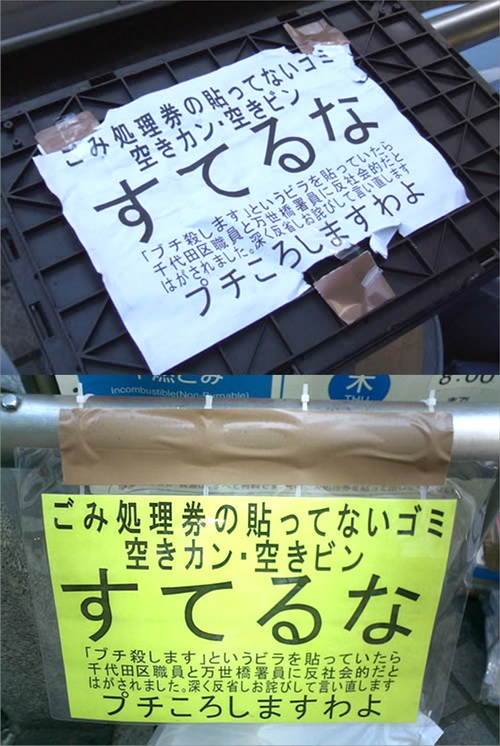 ごみ処理券の貼ってないゴミ
空きカン・空きビン
すてるな
「ブチ殺します」というビラを貼っていたら
千代田区職員と万世橋署員に反社会的だと
はがされました。深く反省しお詫びして言い直します
プチころしますわよ
不燃ごみ
Incombustible(Non-Burnable)
木
THU
8:00
ごみ処理券の貼ってないゴミ
空きカン・空きビン
すてるな
「ブチ殺します」というビラを貼っていたら
千代田区職員と万世橋署員に反社会的だと
はがされました。深く反省しお詫びして言い直します
プチころしますわよ